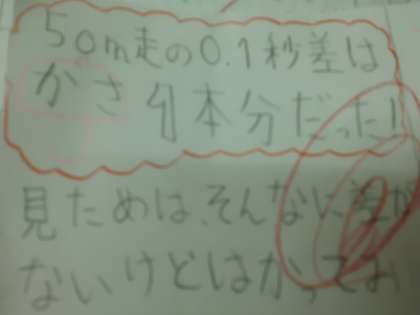 50m走の0.1秒差は
がさ 本分だった!
見ためは、そんなに差が
ないけどはかって